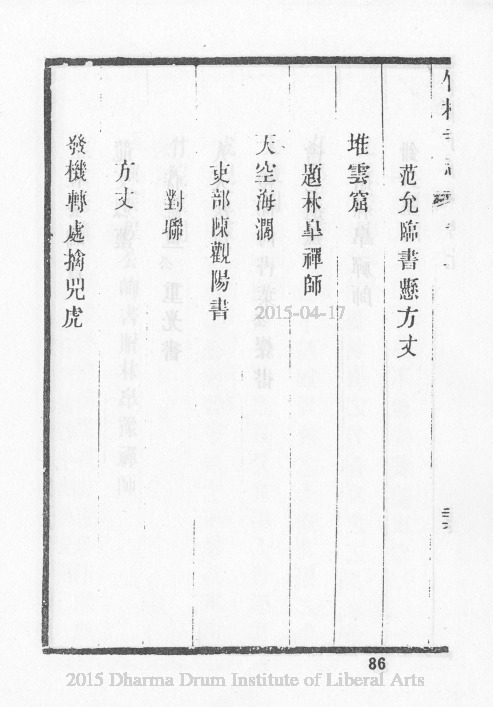 范允臨書懸方丈
堆雲窟
題林臯禪師
天空海濶
吏部陳觀陽書
對聯
方丈
發機轉處擒兕虎
86
2015-04-17
2015 Dharma Drum Institute of Liberal Arts